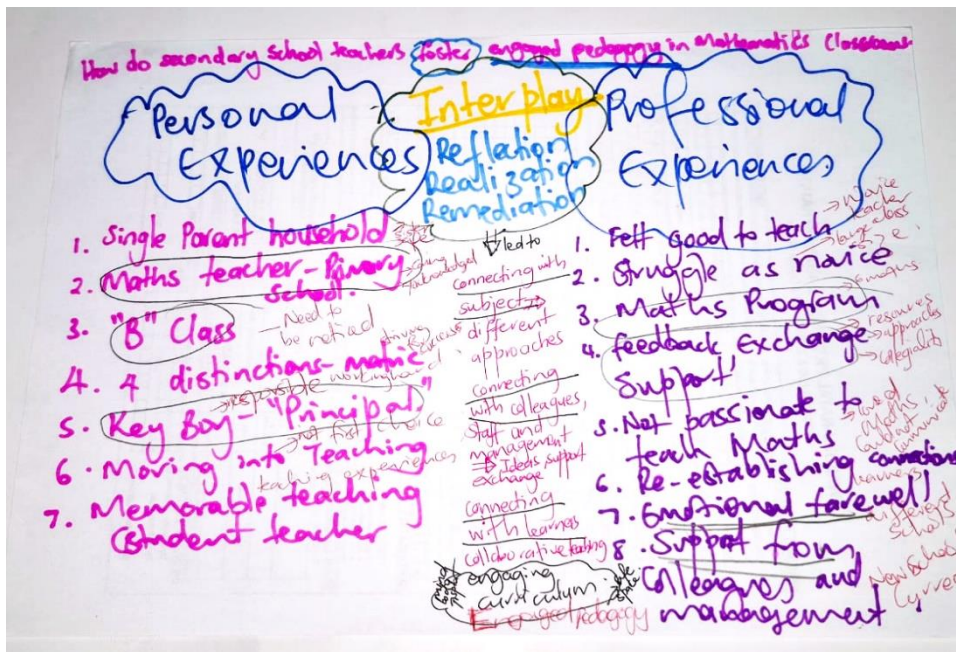 How do secondary school teachers foster engaged pedagogy in Mathematics Classrooms
Personal
Experiences
Interplay
Reflection
Realization
Remediation
Professional
Experiences
1. Single Parent household
2. Maths teacher - Primary
School.
3. "B" Class
Need to
be noticed
4. 4 distinctions - matric
5. Key Boy - "Principal"
responsible
not first choice
6. Moving into Teaching
teaching experiences
7. Memorable teaching
(student teacher
led to
connecting with
subject
different
approaches
connecting
with colleagues,
staff and
management
Ideas, support
exchange
connecting
with learners
collaborative teaching
engaging
curriculum
Engaged pedagogy
1. Felt good to teach
2. Struggle as novice
3. Maths Program
4. feedback, Exchange
Support
5. Not passionate to
teach Maths
6. Re-establishing connections
7. Emotional farewell
8. Support from
colleagues and
management
Novice
teacher
large class
size
resources
approaches
collegiality
learners
different
schools
New School